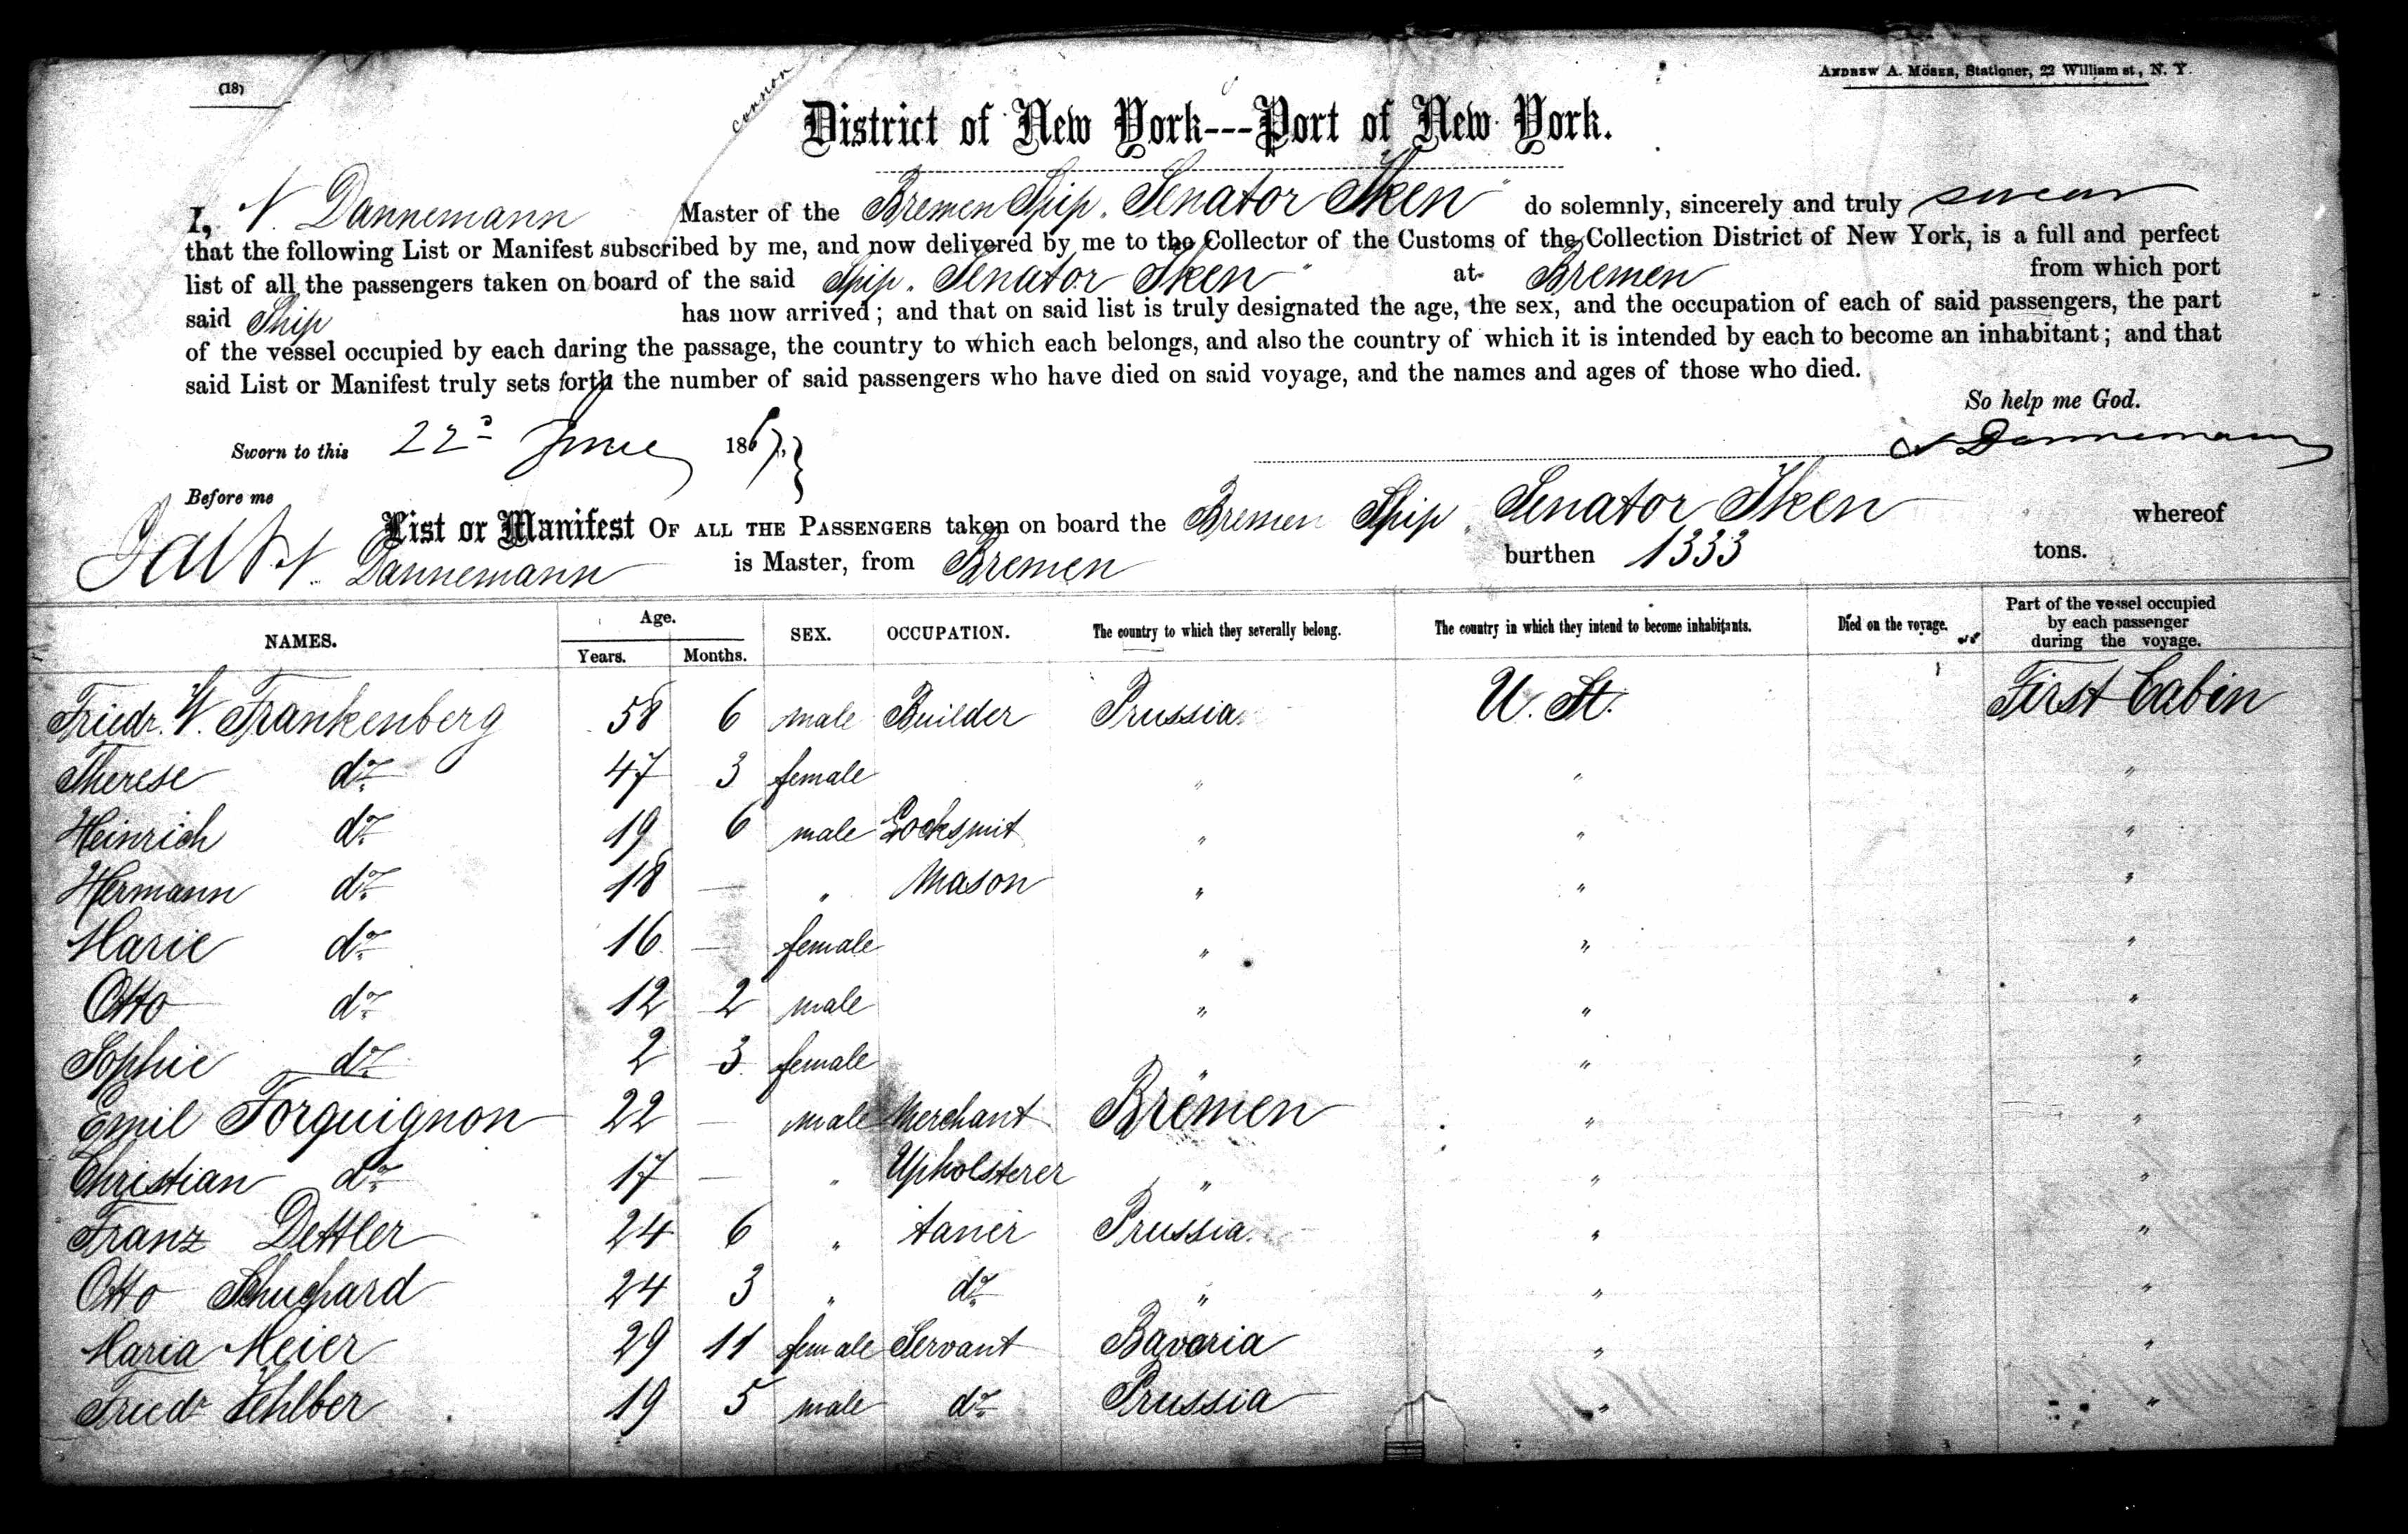 (18)
connon
ANDREW A. MÖSER, Stationer, 22 William st., N. Y.
District of New York---Port of New York.
I, N. Dannemann Master of the Bremen Ship. Senator Iken" do solemnly, sincerely and truly swear
that the following List or Manifest subscribed by me, and now delivered by me to the Collector of the Customs of the Collection District of New York, is a full and perfect
list of all the passengers taken on board of the said Ship. Senator Iken" at Bremen from which port
said Ship has now arrived; and that on said list is truly designated the age, the sex, and the occupation of each of said passengers, the part
of the vessel occupied by each during the passage, the country to which each belongs, and also the country of which it is intended by each to become an inhabitant; and that
said List or Manifest truly sets forth the number of said passengers who have died on said voyage, and the names and ages of those who died.
So help me God.
Sworn to this 22d June 1867. N Dannemann
Before me
List or Manifest OF ALL THE PASSENGERS taken on board the Bremen Ship. Senator Iken whereof
N. Dannemann is Master, from Bremen burthen 1333 tons.
NAMES. Age. Years. Months. SEX. OCCUPATION. The country to which they severally belong. The country in which they intend to become inhabitants. Died on the voyage. Part of the vessel occupied by each passenger during the voyage.
Friedr. W. Frankenberg 58 6 male Builder Prussia U. St. First Cabin
Therese do. 47 3 female " " "
Heinrich do. 19 6 male Locksmit " " "
Hermann do. 18 — " Mason " " "
Marie do. 16 — female " " "
Otto do. 12 2 male " " "
Sophie do. 2 3 female " " "
Emil Forquignon 22 — male Merchant Bremen " "
Christian do. 17 — " Upholsterer " " "
Franz Dettler 24 6 " taner Prussia " "
Otto Schuchard 24 3 " do. " " "
Maria Meier 29 11 female Servant Bavaria " "
Friedr Fehlber 19 5 male do. Prussia " "